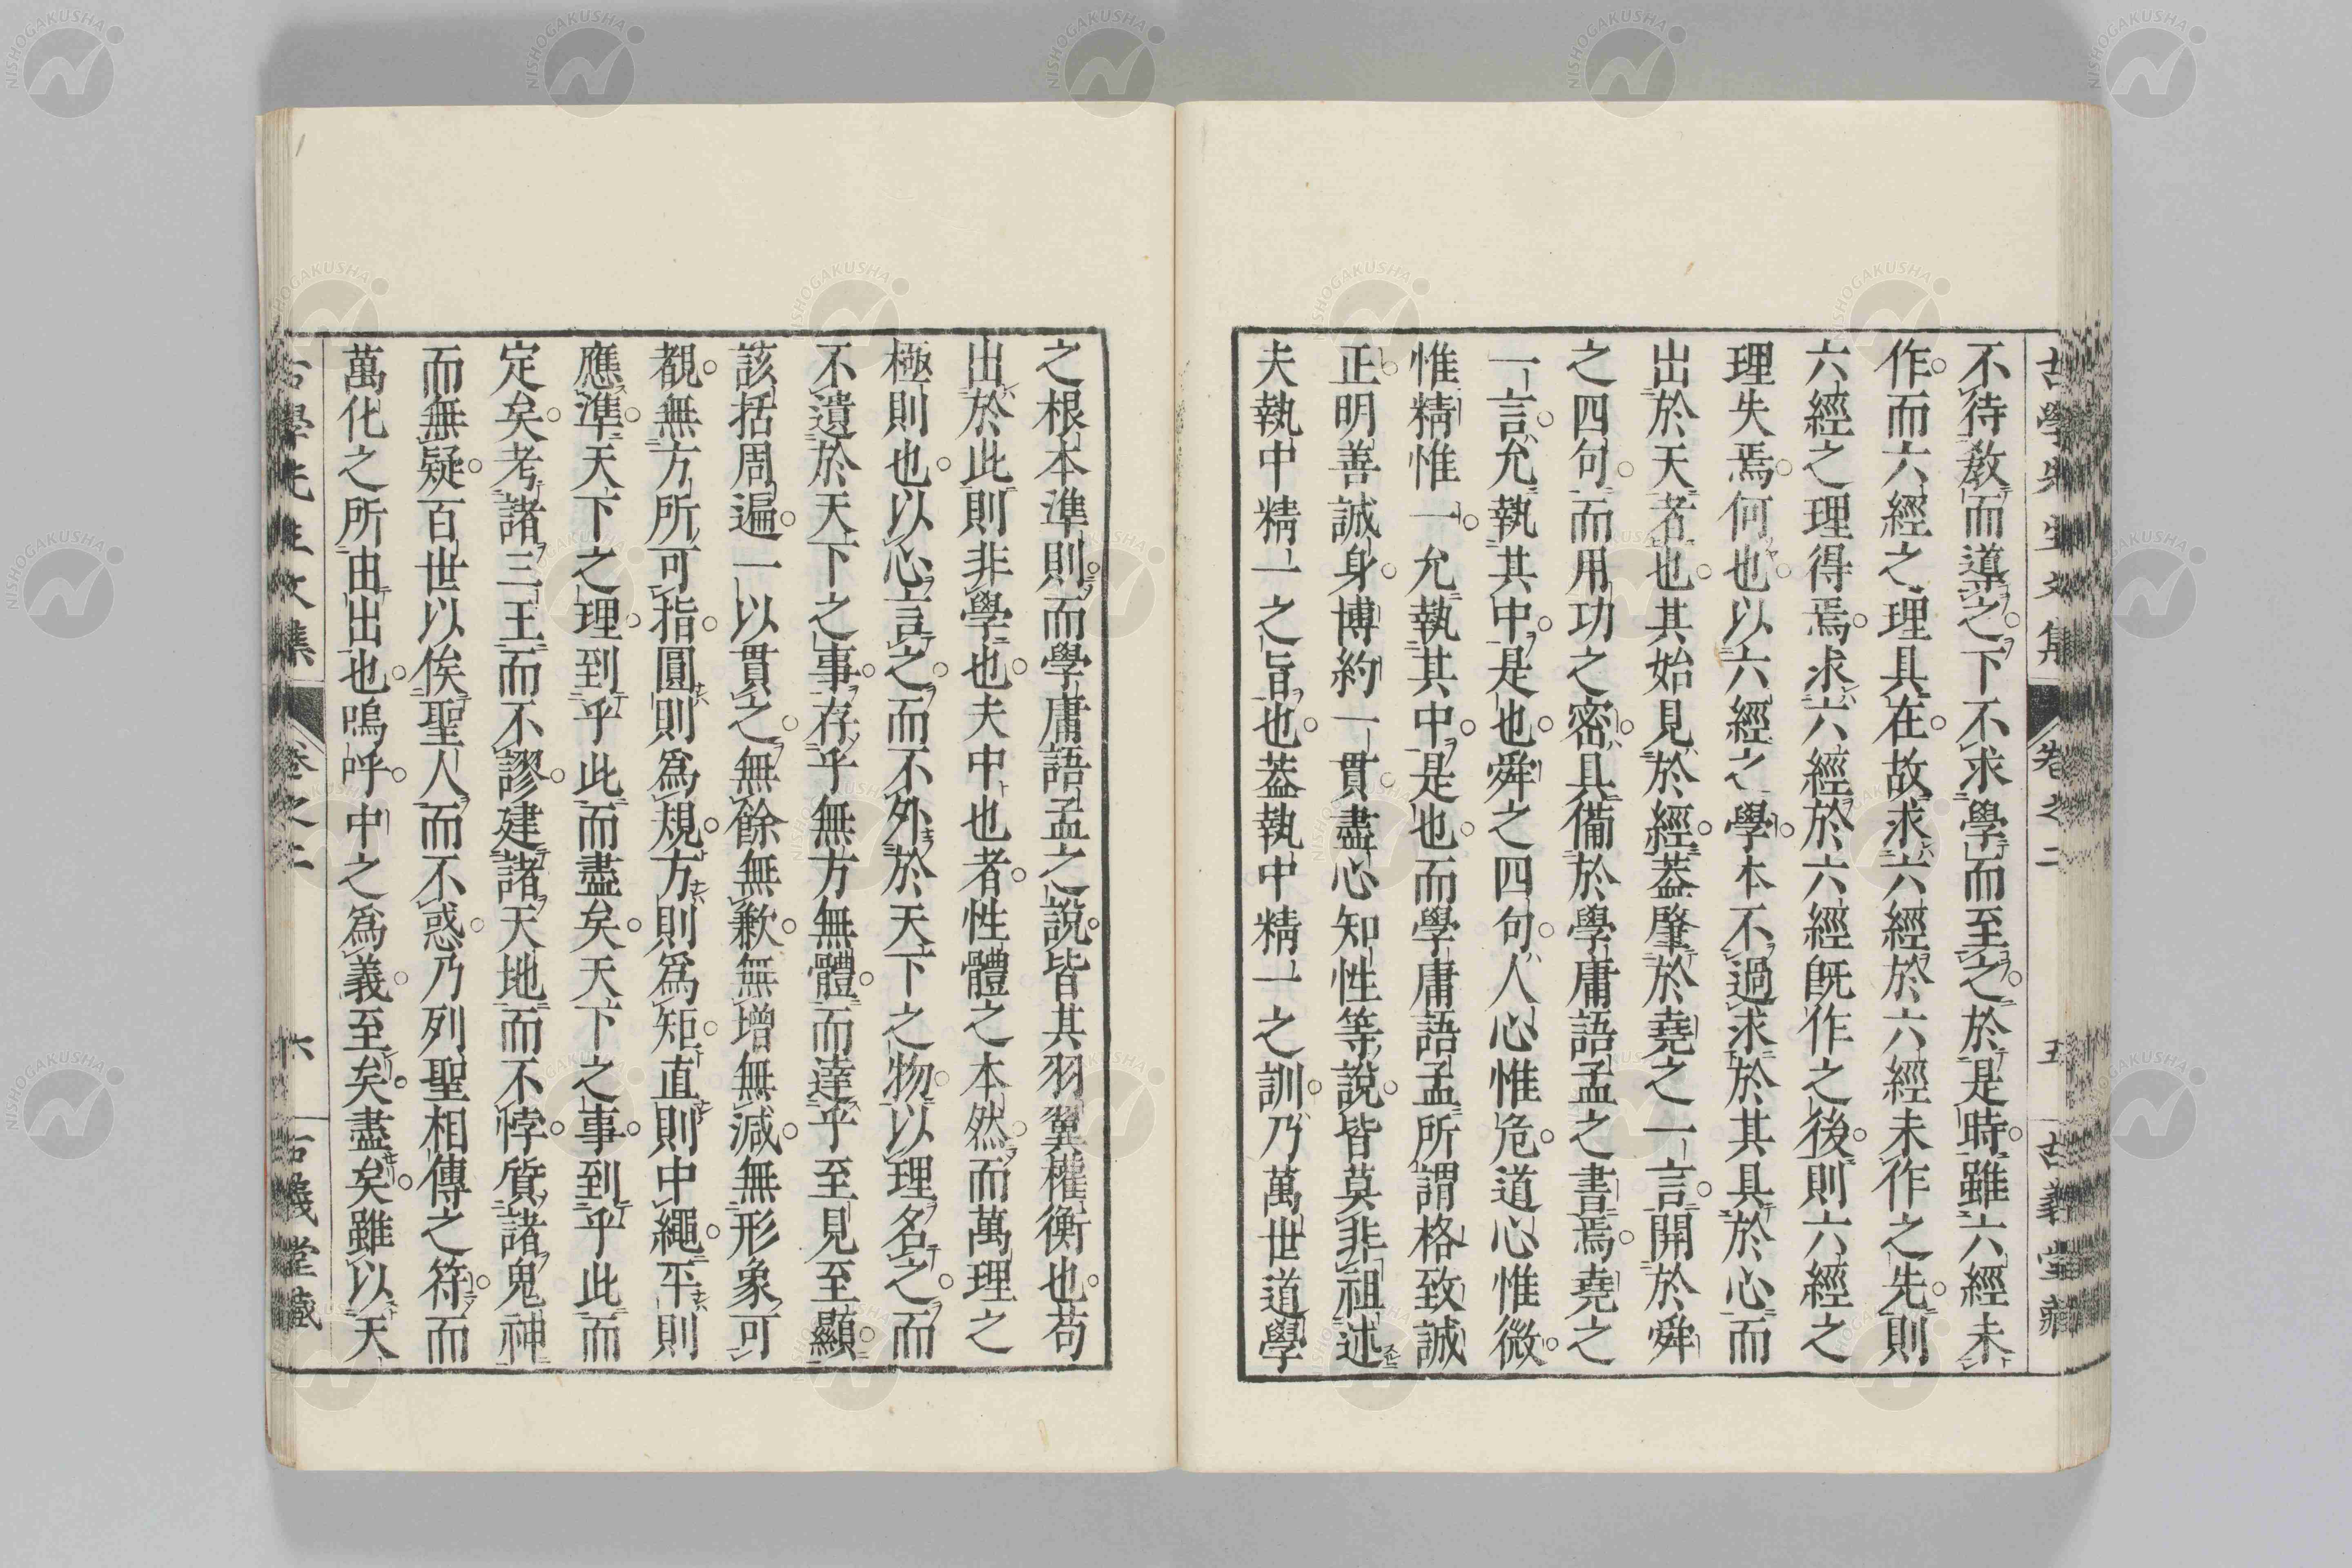 古學先生文集 卷之二 五 古義堂藏
不待敎而導之。下不求學而至之。於是時。雖六經未
作。而六經之理具在。故求六經於六經未作之先。則
六經之理得焉。求六經於六經既作之後。則六經之
理失焉。何也。以六經之學。本不過求於其具於心而
出於天者也。其始見於經。葢肇於堯之一言。開於舜
之四句。而用功之密。具備於學庸語孟之書焉。堯之
一言。允執其中。是也。舜之四句。人心惟危。道心惟微。
惟精惟一。允執其中。是也。而學庸語孟所謂格致誠
正。明善誠身。博約一貫。盡心知性等說。皆莫非祖述
夫執中精一之旨也。葢執中精一之訓。乃萬世道學
之根本準則。而學庸語孟之說。皆其羽翼權衡也。苟
出於此。則非學也。夫中也者。性體之本然。而萬理之
極則也。以心言之。而不外於天下之物。以理名之。而
不遺於天下之事。存乎無方無體。而達乎至見至顯。
該括周遍。一以貫之。無餘無歉。無增無減。無形象可
覩。無方所可指。圓則爲規。方則爲矩。直則中繩。平則
應準。天下之理。到乎此而盡矣。天下之事。到乎此而
定矣。考諸三王而不謬。建諸天地而不悖。質諸鬼神
而無疑。百世以俟聖人而不惑。乃列聖相傳之符。而
萬化之所由出也。嗚呼。中之爲義。至矣。盡矣。雖以天
古學先生文集 卷之二 六 古義堂藏